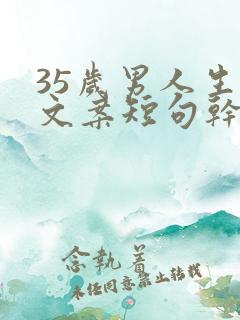 35歲男人生
文案短句幹
念執着
未经同意禁止转载